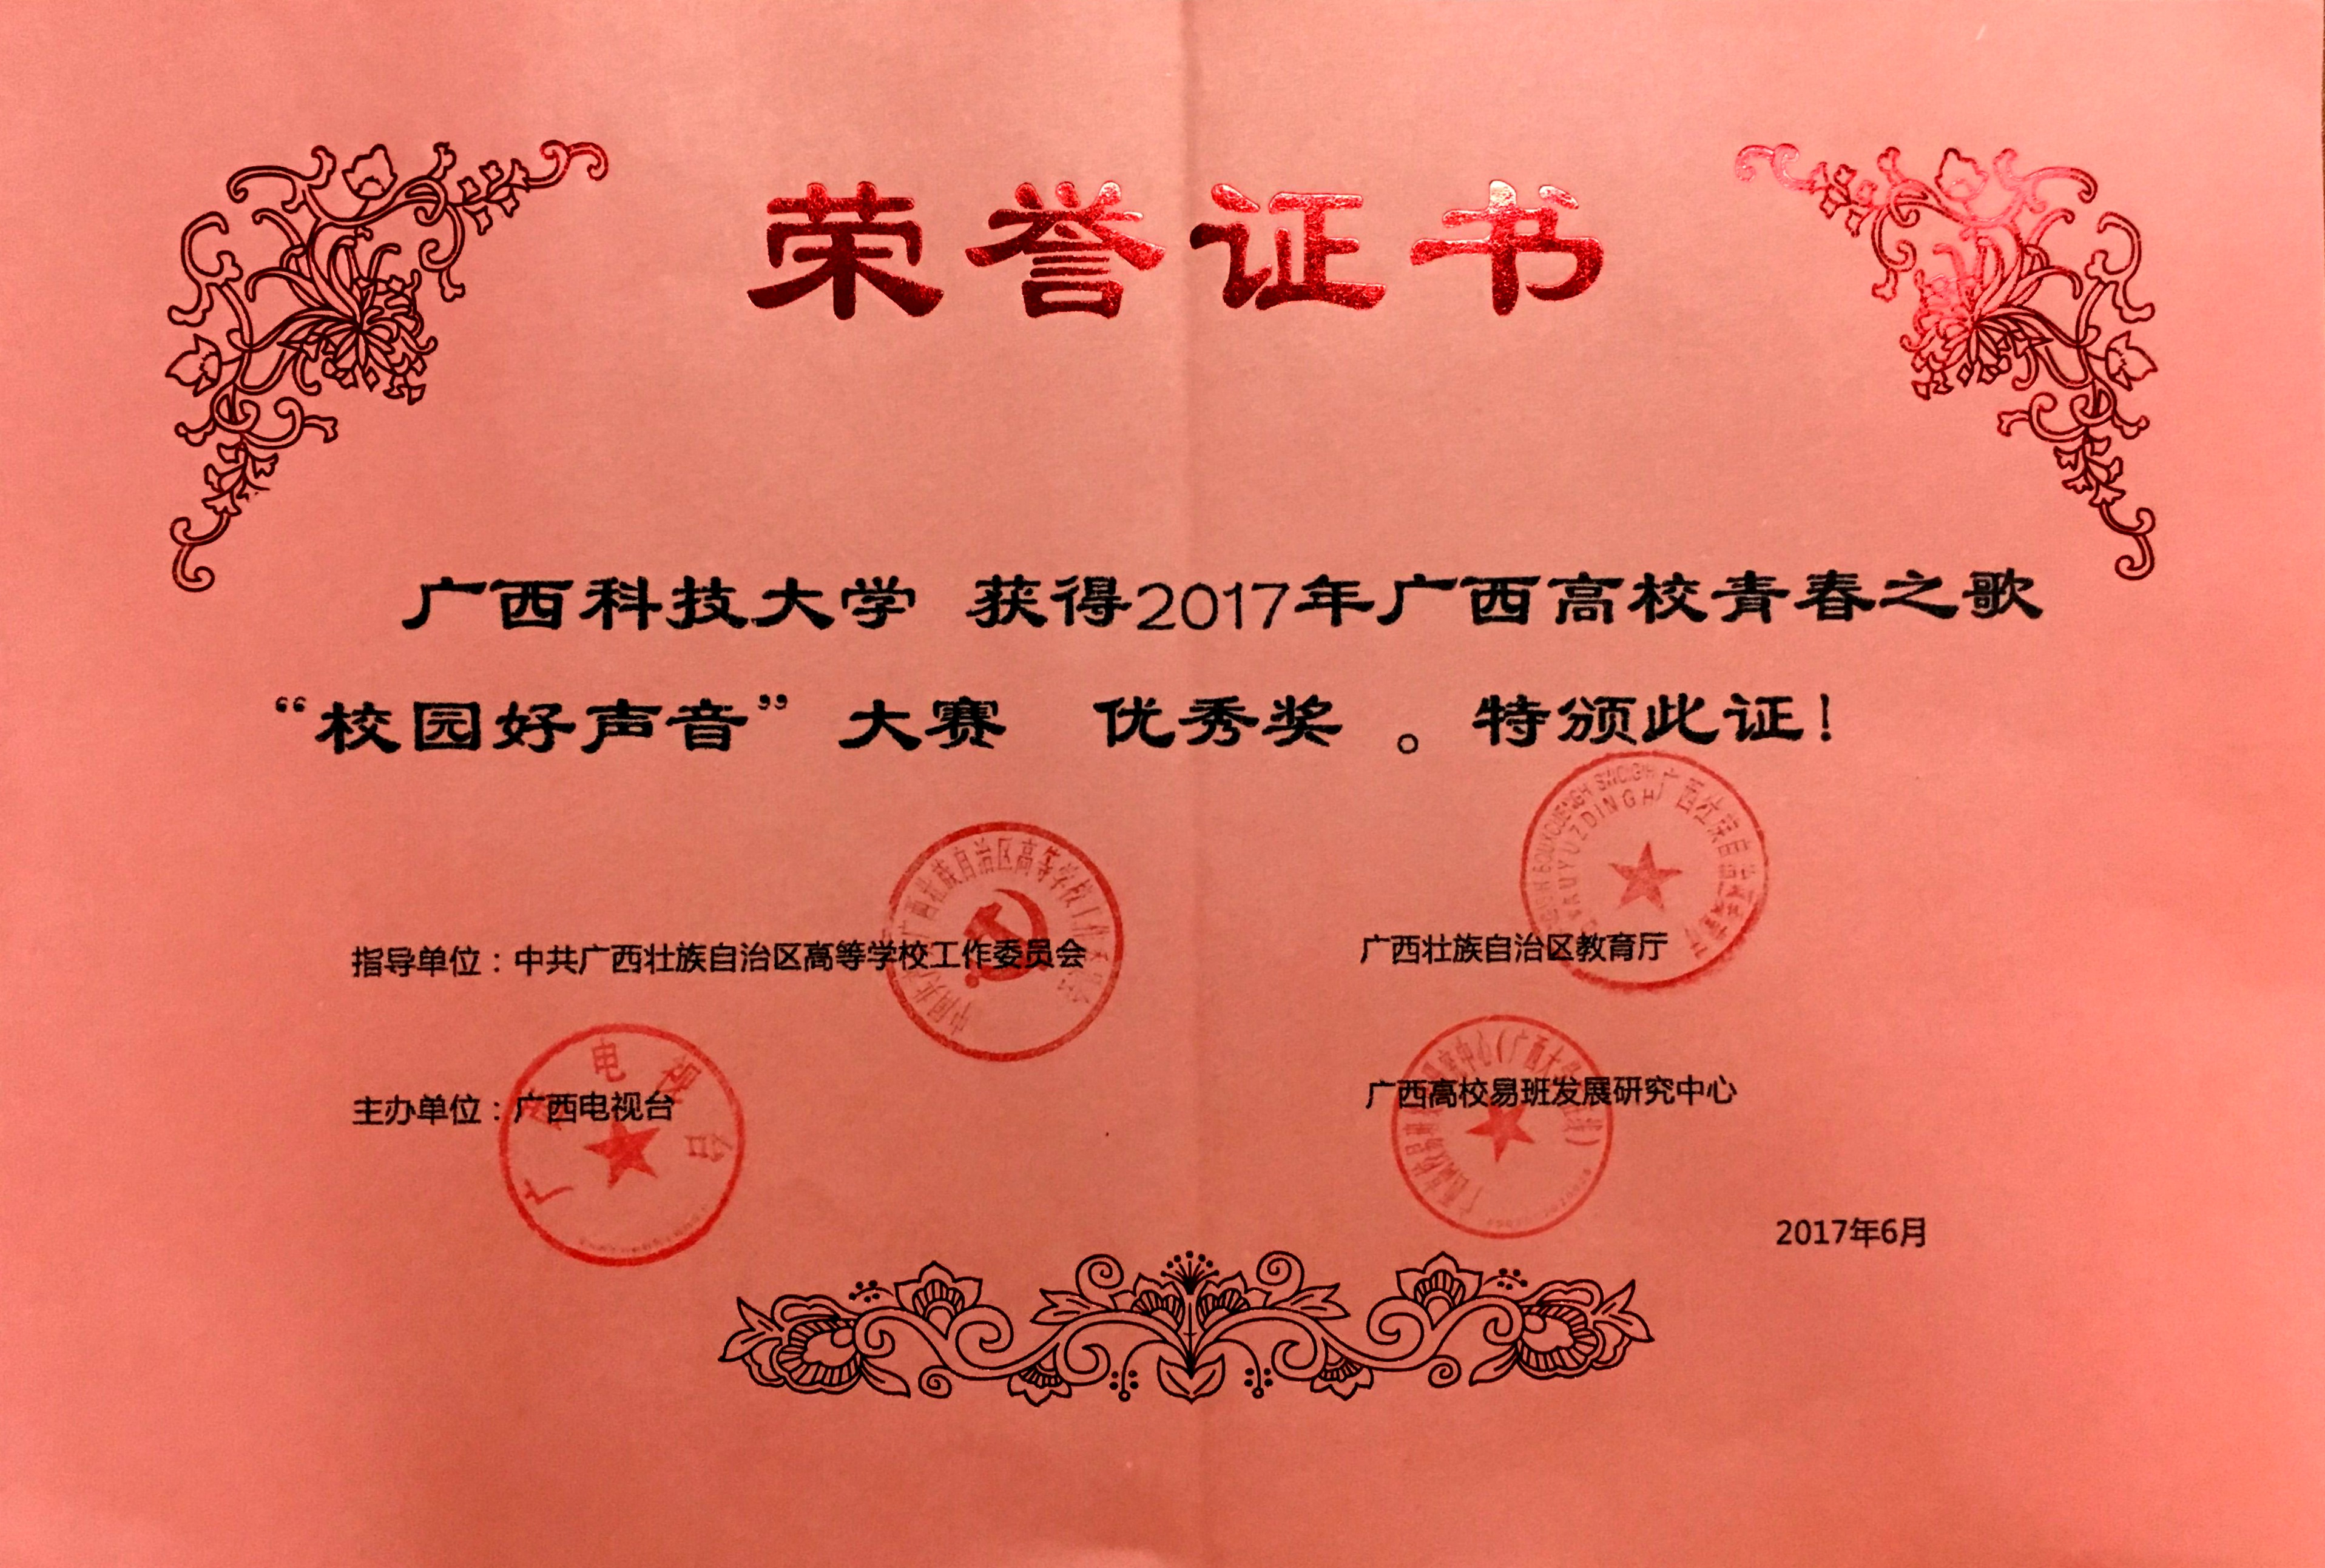 荣誉证书
广西科技大学 获得2017年广西高校青春之歌
“校园好声音”大赛 优秀奖 。特颁此证！
指导单位：中共广西壮族自治区高等学校工作委员会 广西壮族自治区教育厅
主办单位：广西电视台 广西高校易班发展研究中心
2017年6月
广西电视台
广西壮族自治区高等学校工
广西壮族自治区